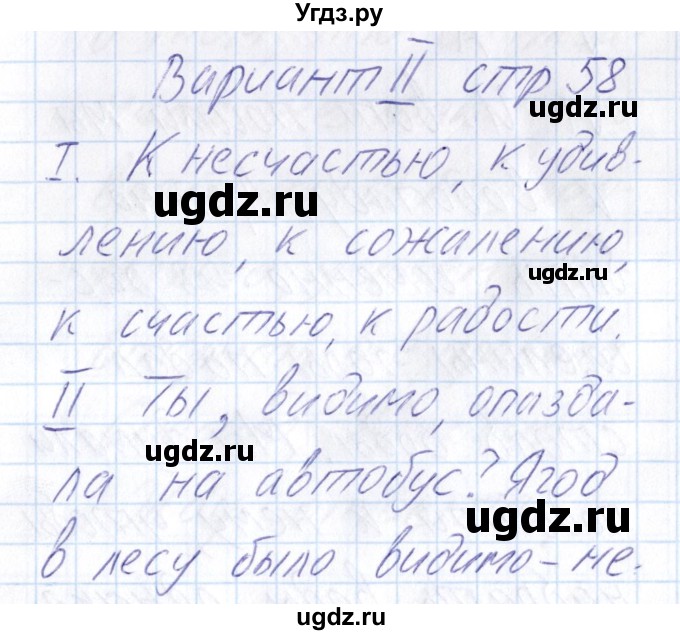 Угдз.ру
Вариант II стр 58
ugdz.ru
I. К несчастью, к удив-
ugdz.ru
лению, к сожалению,
ugdz.ru
к счастью, к радости.
II Ты, видимо, опазда-
ugdz.ru
ла на автобус? Ягод
ugdz.ru
в лесу было видимо-не-
ugdz.ru